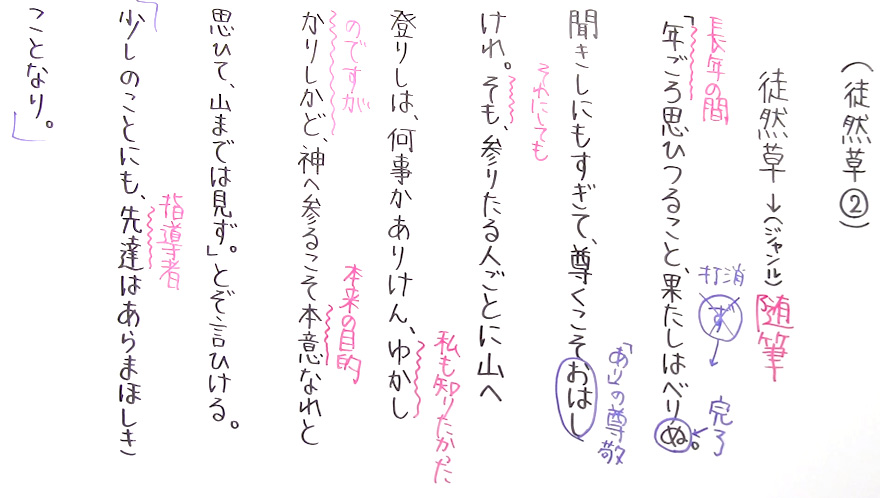 （徒然草②）
徒然草→（ジャンル）随筆
長年の間
打消
ず
完了
「年ごろ思ひつること、果たしはべりぬ。
「あり」の尊敬
聞きしにもすぎて、尊くこそおはし
それにしても
けれ。そも、参りたる人ごとに山へ
私も知りたかった
登りしは、何事かありけん、ゆかし
のですが
本来の目的
かりしかど、神へ参るこそ本意なれと
思ひて、山までは見ず。」とぞ言ひける。
指導者
「少しのことにも、先達はあらまほしき
ことなり。」